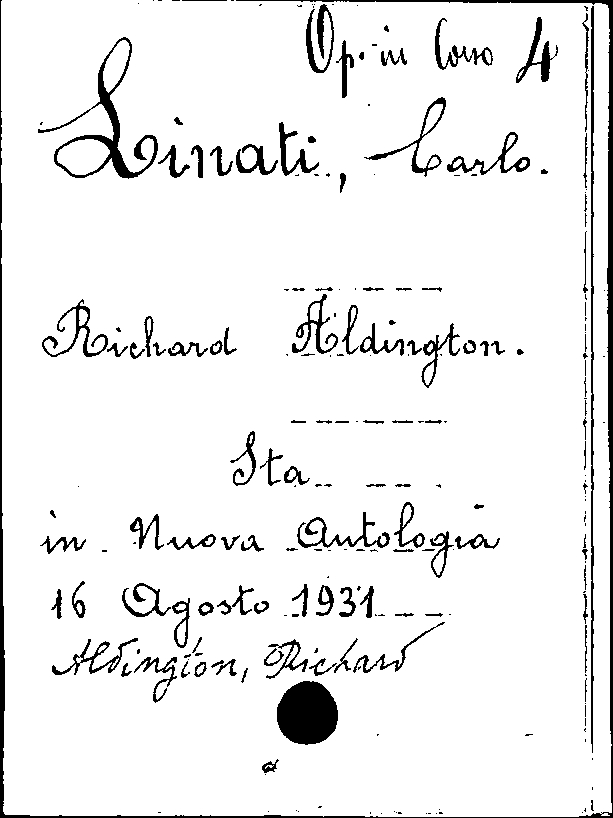 Op. in Corso 4
Linati, Carlo.
Richard Aldington.
Sta
in Nuova Antologia
16 Agosto 1931
Aldington, Richard